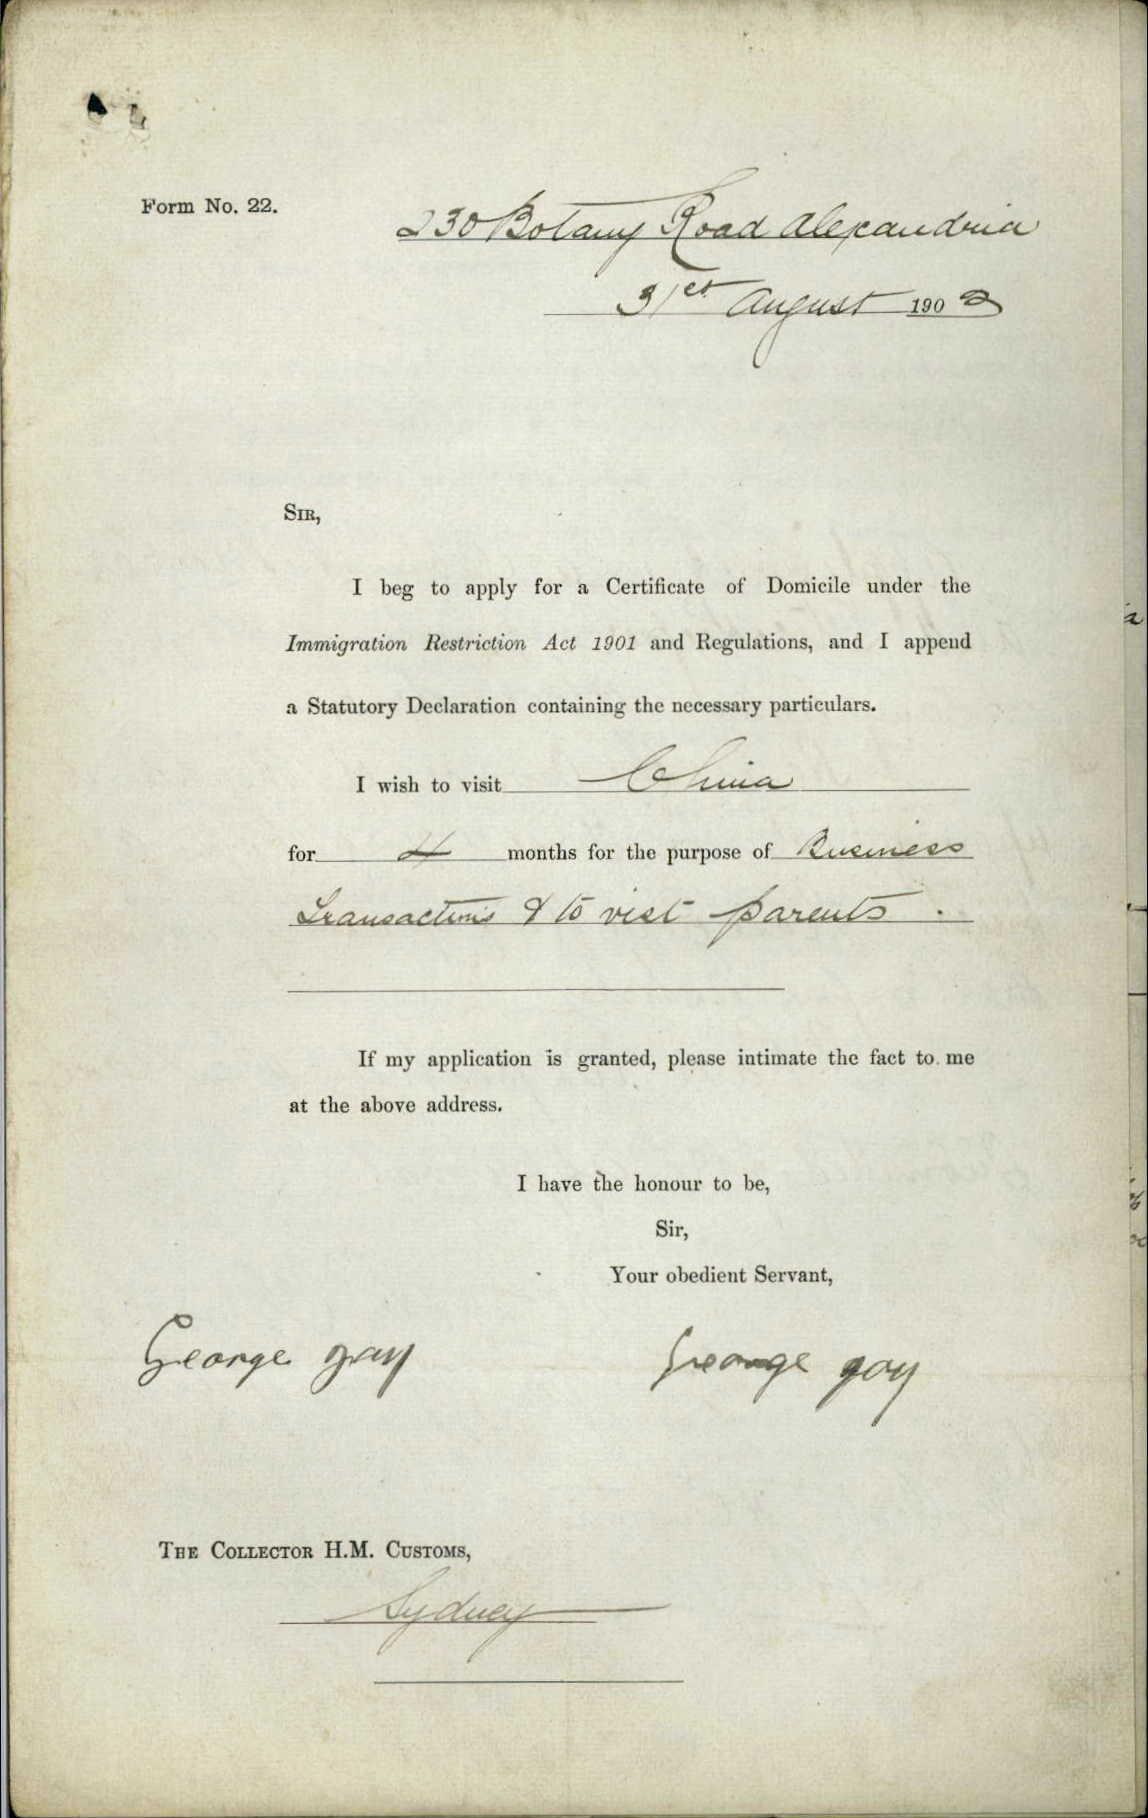 Form No. 22.
230 Botany Road Alexandria
31st August 1903
SIR,
I beg to apply for a Certificate of Domicile under the
Immigration Restriction Act 1901 and Regulations, and I append
a Statutory Declaration containing the necessary particulars.
I wish to visit China
for 4 months for the purpose of Business
Transactions & to visit parents.
If my application is granted, please intimate the fact to me
at the above address.
I have the honour to be,
Sir,
Your obedient Servant,
George gay George gay
THE COLLECTOR H.M. CUSTOMS,
Sydney